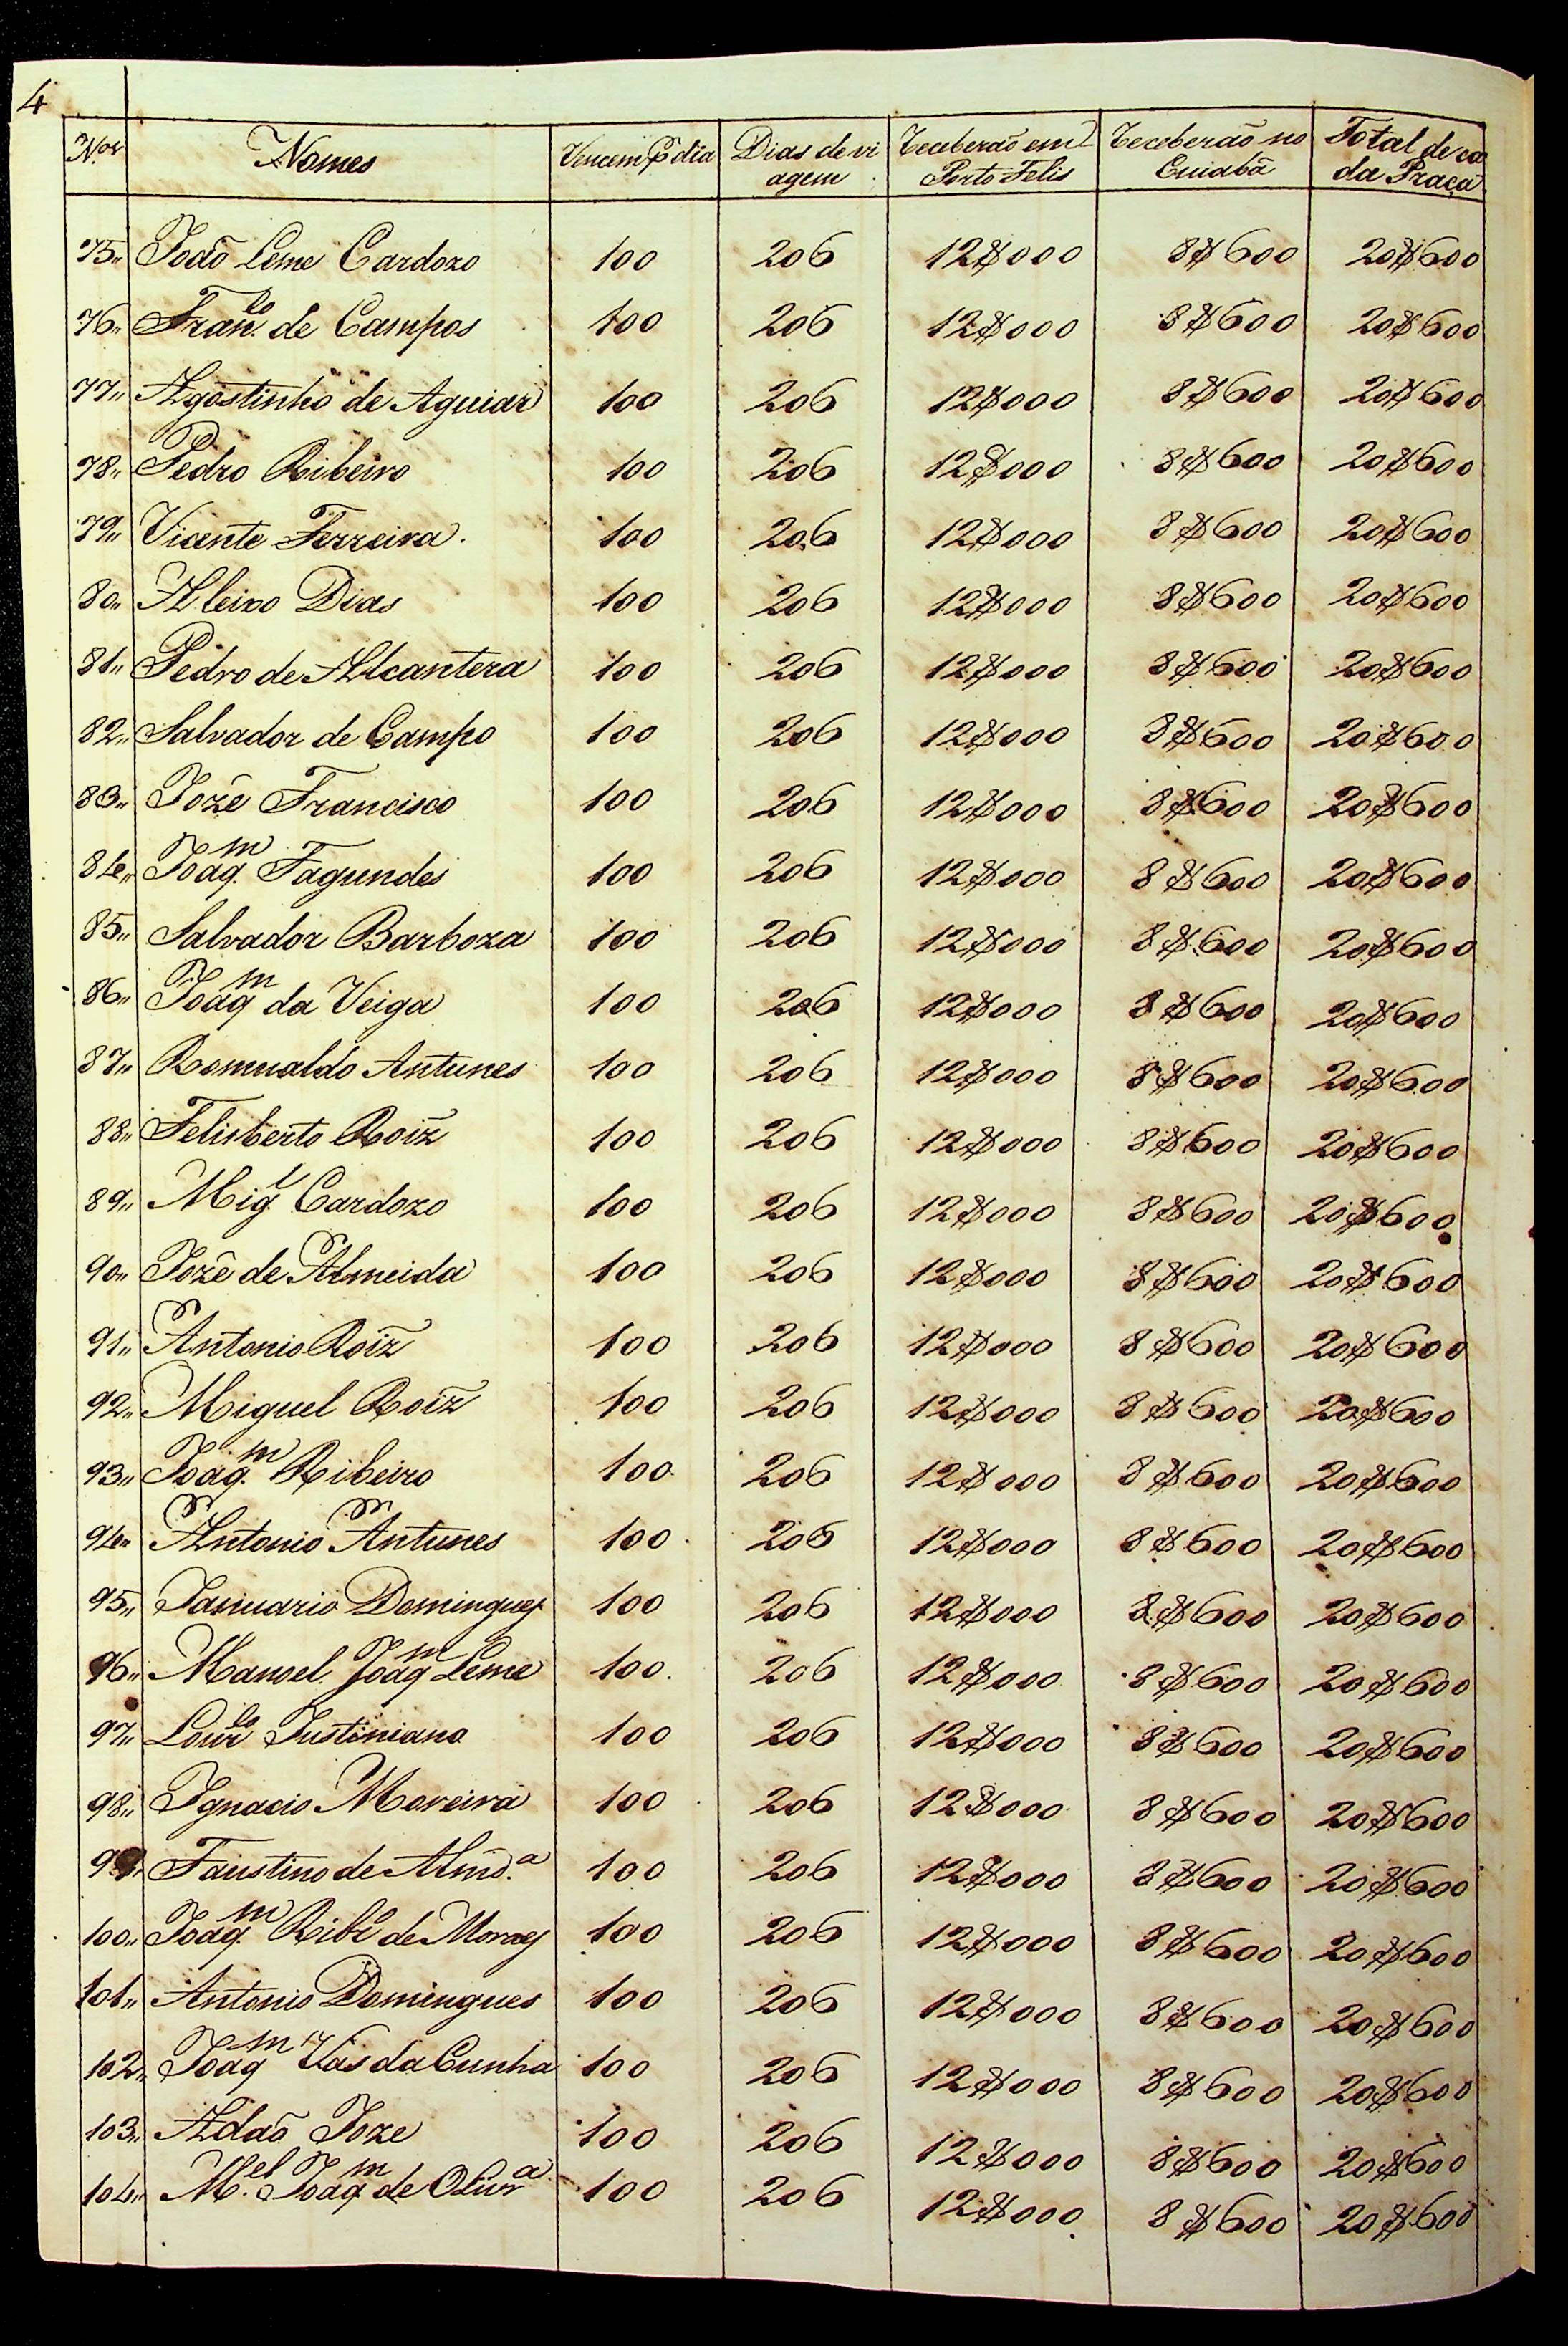 4
N.os Nomes Vencem p dia Dias de vi agem Receberão em Porto Felis Receberão no Cuiabá Total de ca da Praça
75,, João Leme Cardozo 100 206 12$000 8$600 20$600
76,, Fran.co de Campos 100 206 12$000 8$600 20$600
77,, Agostinho de Aguiar 100 206 12$000 8$600 20$600
78,, Pedro Ribeiro 100 206 12$000 8$600 20$600
79,, Vicente Ferreira. 100 206 12$000 8$600 20$600
80,, Aleixo Dias 100 206 12$000 8$600 20$600
81,, Pedro de Alcantera 100 206 12$000 8$600 20$600
82,, Salvador de Campo 100 206 12$000 8$600 20$600
83,, Jozê Francisco 100 206 12$000 8$600 20$600
84,, Joaq.m Fagundes 100 206 12$000 8$600 20$600
85,, Salvador Barboza 100 206 12$000 8$600 20$600
86,, Joaqm da Veiga 100 206 12$000 8$600 20$600
87,, Romualdo Antunes 100 206 12$000 8$600 20$600
88,, Felisberto Roiz 100 206 12$000 8$600 20$600
89,, Mig.l Cardozo 100 206 12$000 8$600 20$600
90,, Jozê de Almeida 100 206 12$000 8$600 20$600
91,, Antonio Roiz 100 206 12$000 8$600 20$600
92,, Miguel Roiz 100 206 12$000 8$600 20$600
93,, Joaq.m Ribeiro 100 206 12$000 8$600 20$600
94,, Antonio Antunes 100 206 12$000 8$600 20$600
95,, Januario Domingues 100 206 12$000 8$600 20$600
96,, Manoel Joaqm Leme 100 206 12$000 8$600 20$600
97,, Lourco Justiniano 100 206 12$000 8$600 20$600
98,, Ignacio Moreira 100 206 12$000 8$600 20$600
99,, Faustino de Almd.a 100 206 12$000 8$600 20$600
100,, Joaq.m Ribo de Moraes 100 206 12$000 8$600 20$600
101,, Antonio Domingues 100 206 12$000 8$600 20$600
102,, Joaqm Vas da Cunha 100 206 12$000 8$600 20$600
103,, Adaõ Joze 100 206 12$000 8$600 20$600
104,, M.el Joaqm de Olivra 100 206 12$000 8$600 20$600